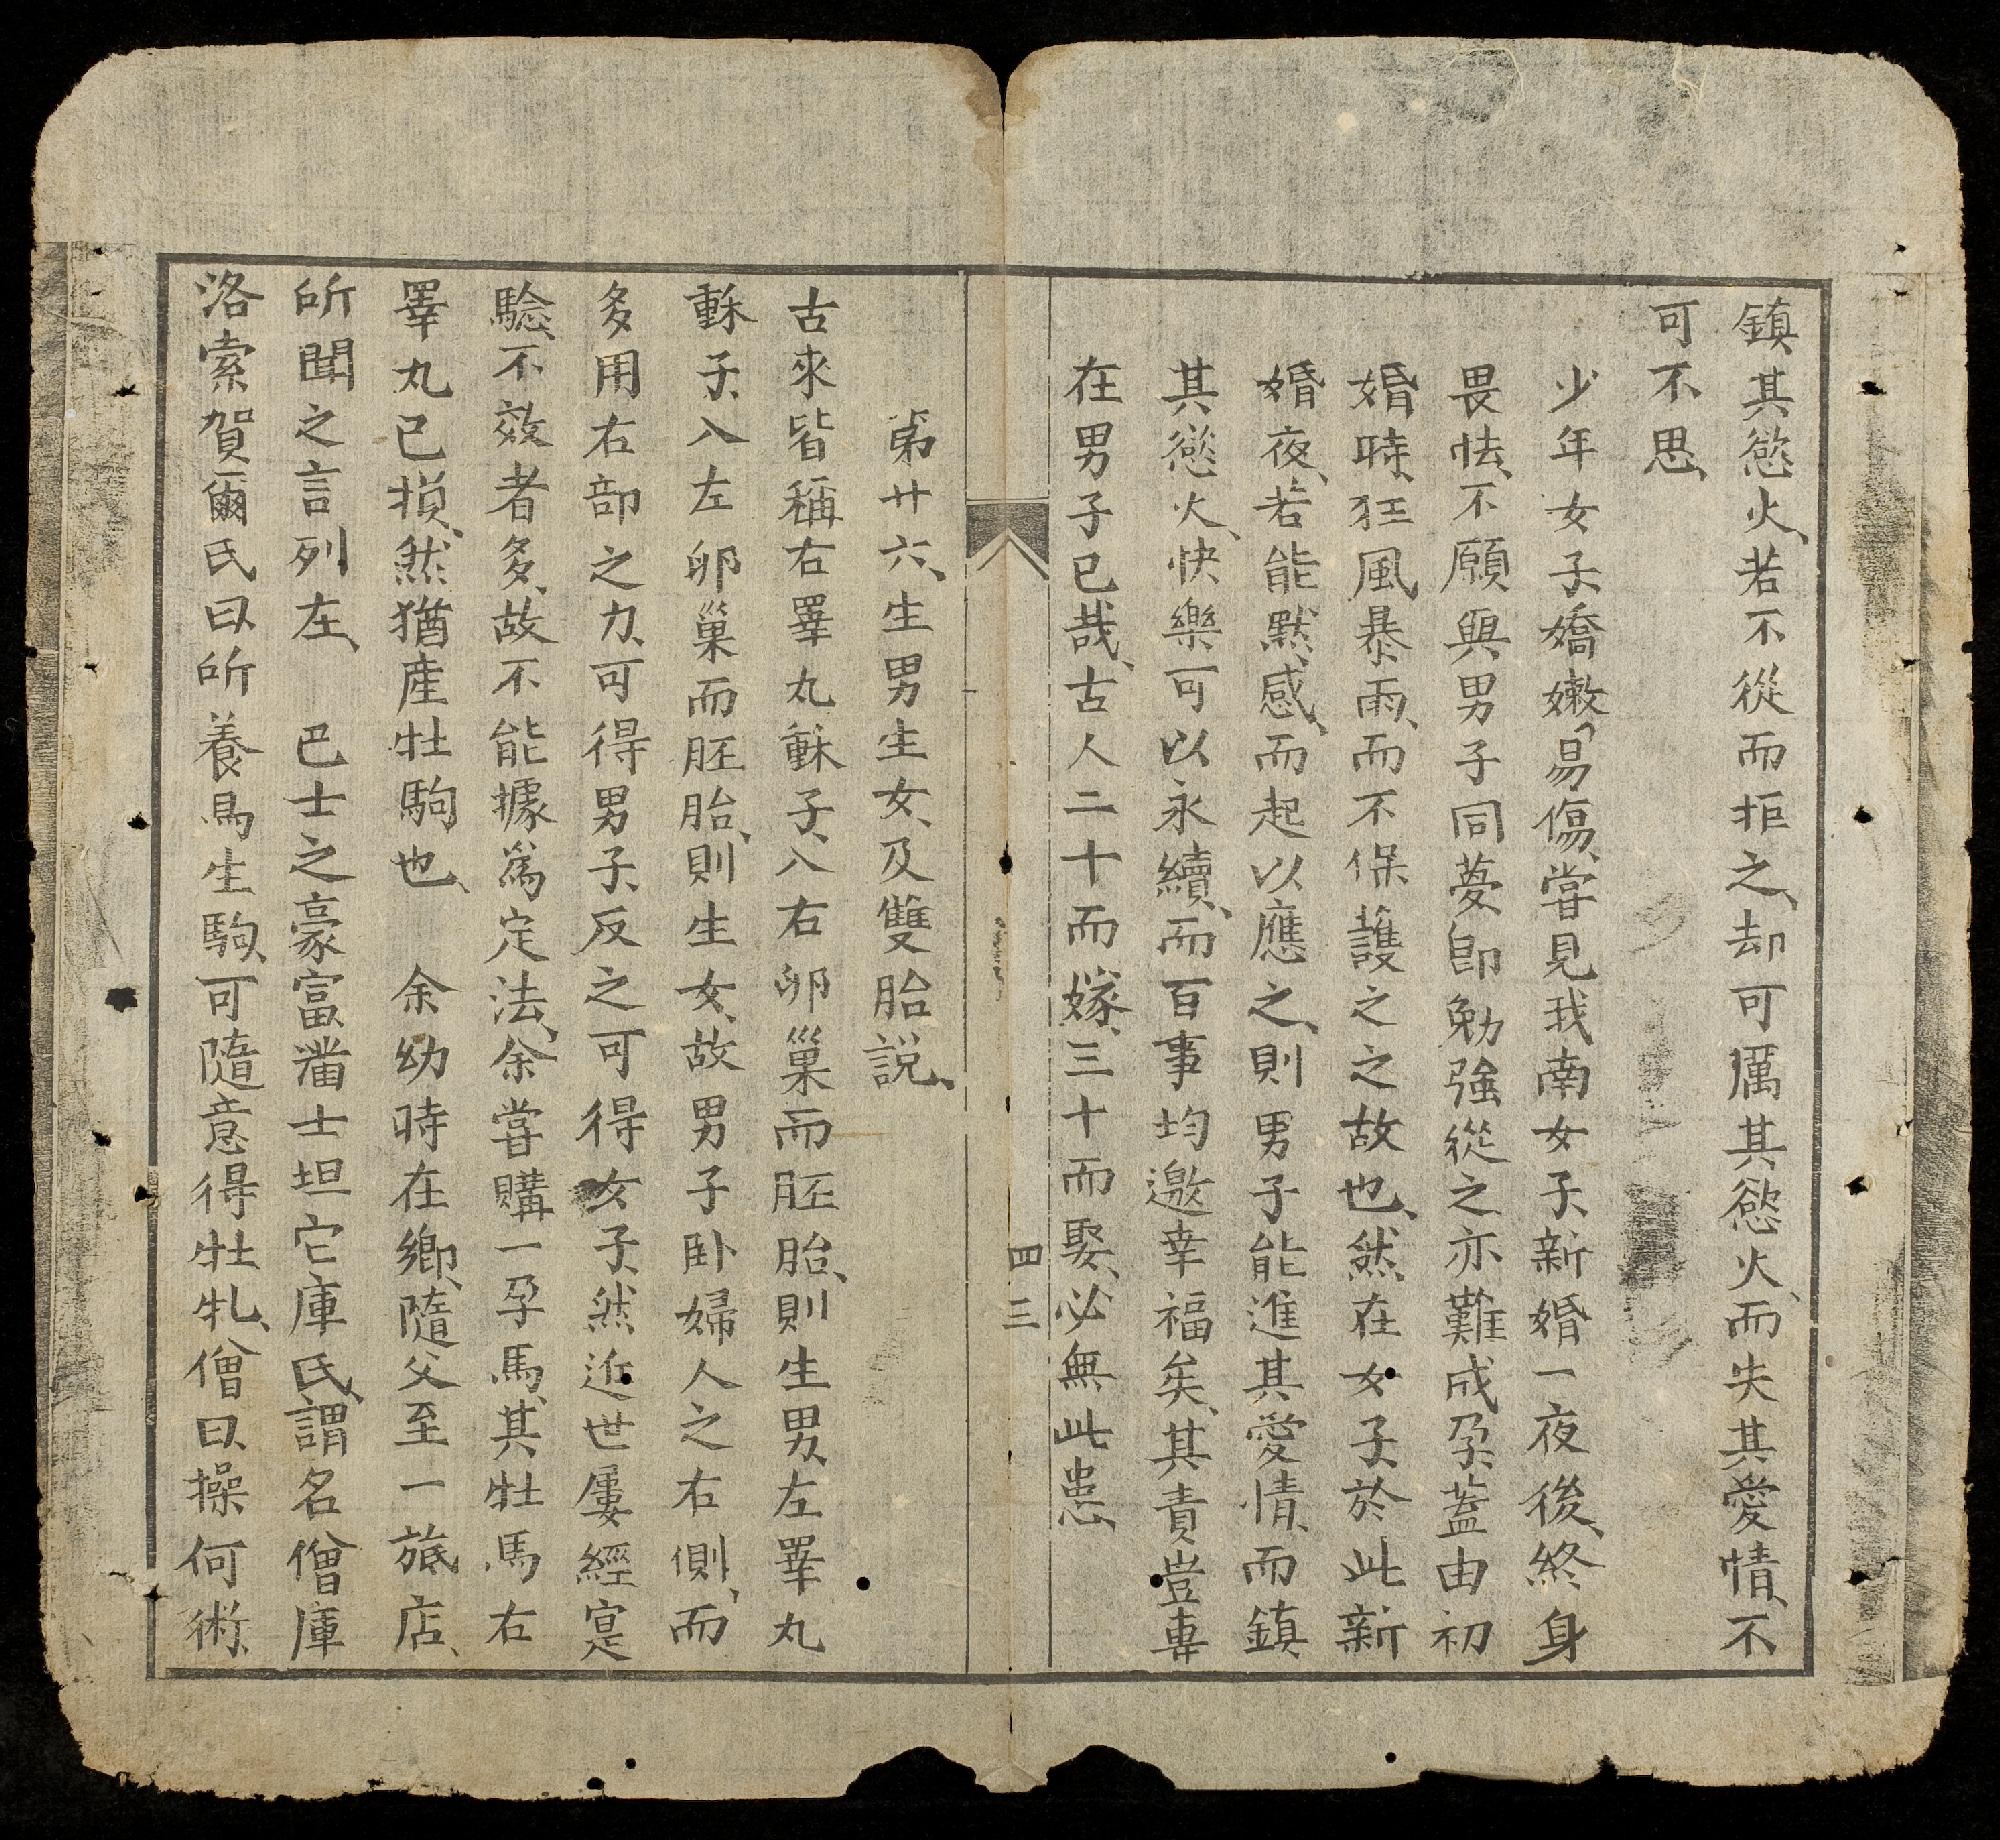 鎮其慾火、若不從而拒之、却可厲其慾火、而失其愛情、不
可不思、
少年女子嬌嫩、易傷、嘗見我南女子、新婚一夜後、終身
畏怯、不願與男子同夢、即勉強從之、亦難成孕、蓋由初
婚時、狂風暴雨、而不保護之之故也、然在女子於此新
婚夜、若能默感、而起以應之、則男子能進其愛情、而鎮
其慾火、快樂可以永續、而百事均邀幸福矣、其責豈專
在男子已哉、古人二十而嫁、三十而娶、必無此患、
四三
第廿六、生男生女、及雙胎説、
古來皆稱右睪丸蘇子、入右卵巢而胚胎、則生男、左睪丸
蘇子、入左卵巢而胚胎、則生女、故男子卧婦人之右側、而
多用右部之力、可得男子、反之可得女子、然近世屢經寔
驗、不效者多、故不能據爲定法、余嘗購一孕馬、其牡馬右
睪丸已損、然猶產牡駒也、　余幼時在鄉、隨父至一旅店、
所聞之言列左、　巴士之豪富潘士坦它庫氏、謂名僧庫
洛索賀爾氏曰、所養馬生駒、可隨意得牡牝、僧曰、操何術、